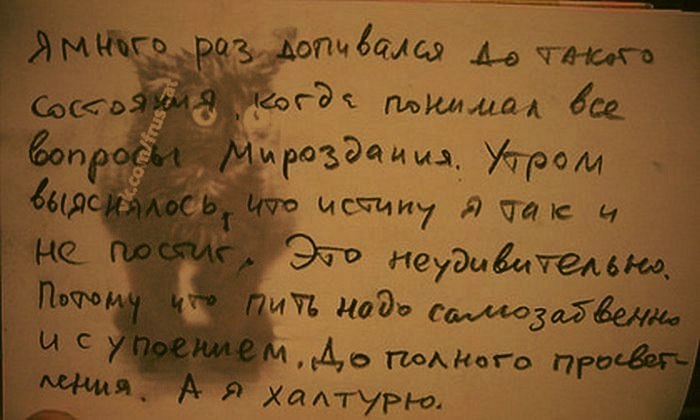 Я много раз допивался до такого
состояния, когда понимал все
вопросы Мироздания. Утром
выяснялось, что истину я так и
не постиг. Это неудивительно.
Потому что пить надо самозабвенно
и с упоением. До полного просвет-
ления. А я халтурю.